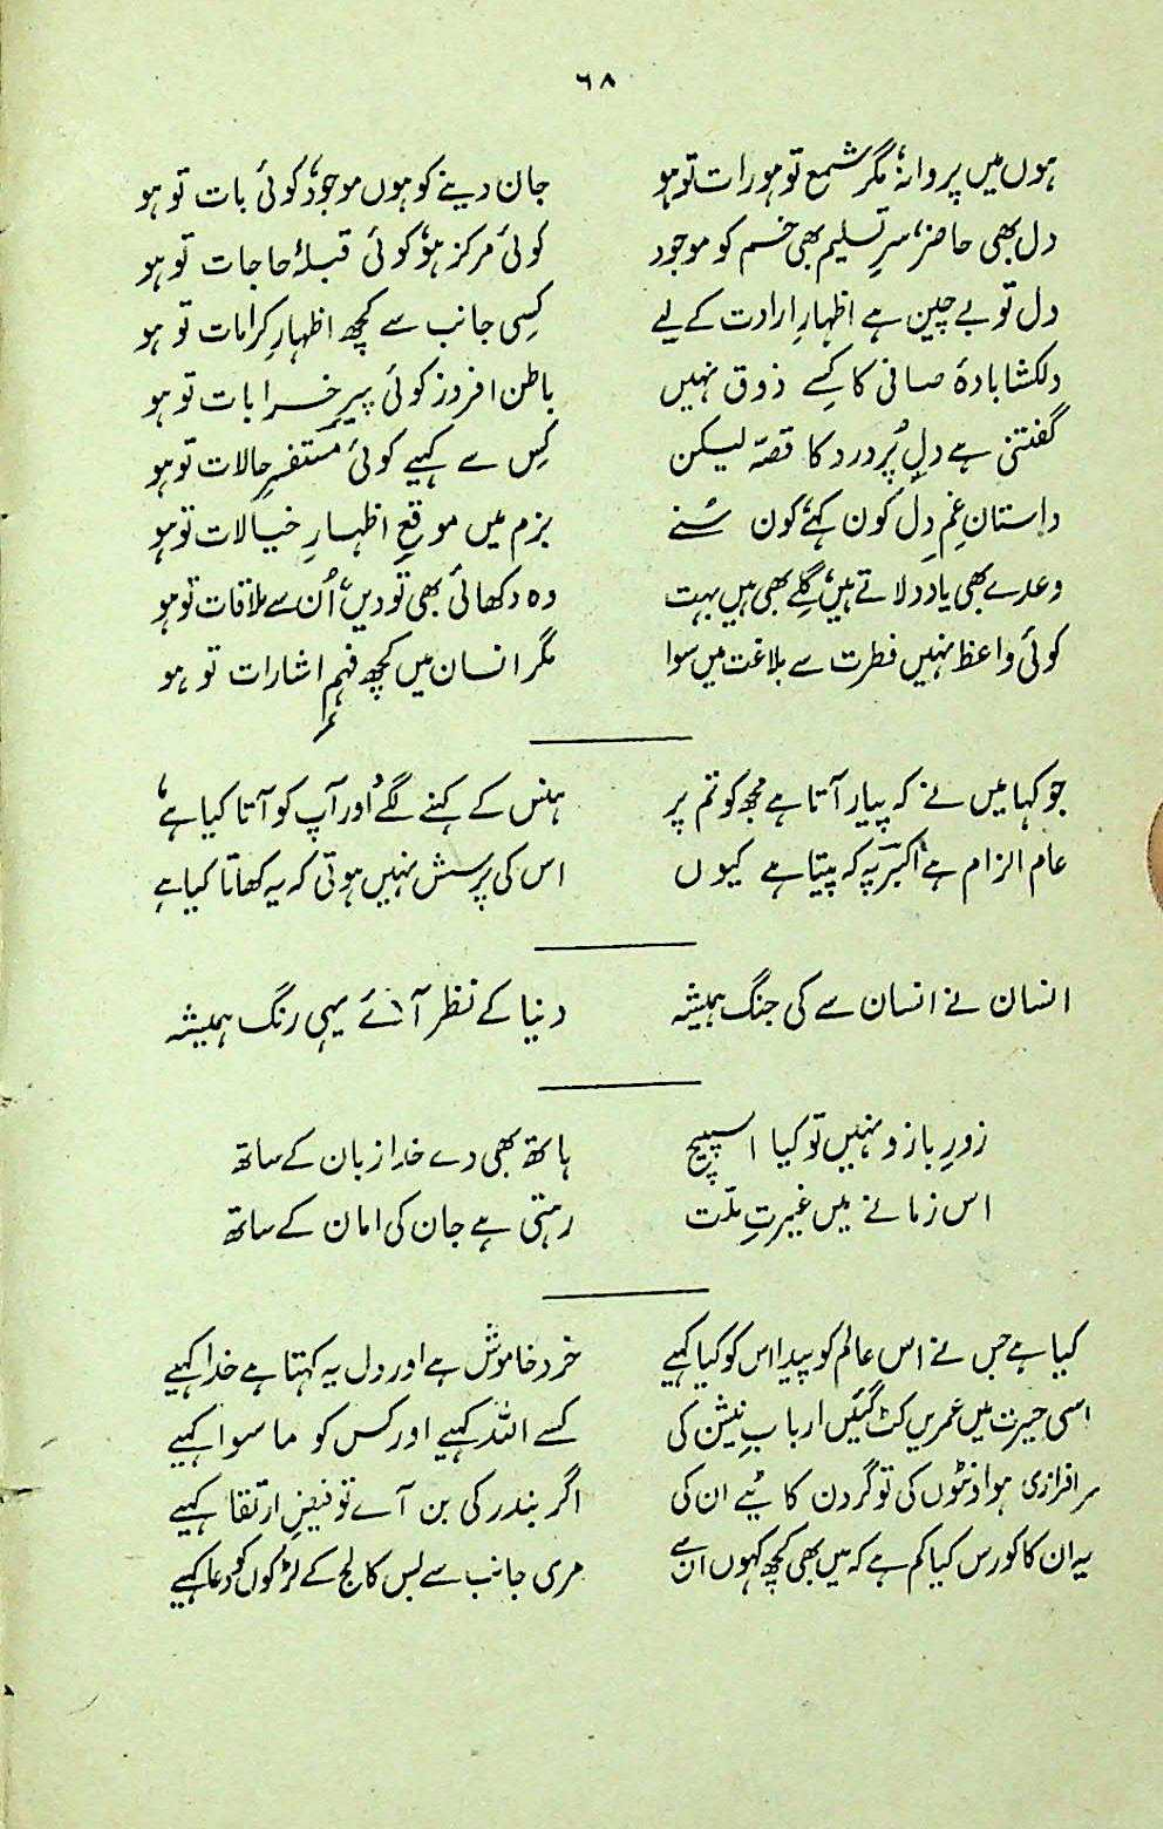 ٦٨
ہوں میں پروانہ، مگر شمع تو ہو رات تو ہو جان دینے کو ہوں موجود، کوئی بات تو ہو
دل بھی حاضر، سرِ تسلیم بھی خم کو موجود کوئی مرکز ہو، کوئی قبلۂ حاجات تو ہو
دل تو بے چین ہے اظہارِ ارادت کے لیے کسی جانب سے کچھ اظہارِ کرامات تو ہو
دلکشا بادۂ صافی کا کسے ذوق نہیں باطن افروز کوئی پیرِ خرابات تو ہو
گفتنی ہے دلِ پُر درد کا قصّہ لیکن کِس سے کہیے کوئی مستفسرِ حالات تو ہو
داستانِ غمِ دل کون کہے، کون سُنے بزم میں موقعِ اظہارِ خیالات تو ہو
وعدے بھی یاد دلاتے ہیں، گلے بھی ہیں بہت وہ دکھائی بھی تو دیں، اُن سے ملاقات تو ہو
کوئی واعظ نہیں فطرت سے بلاغت میں سوا مگر انسان میں کچھ فہمِ اشارات تو ہو
جو کہا میں نے کہ پیار آتا ہے مجھ کو تم پر ہنس کے کہنے لگے ’اور آپ کو آتا کیا ہے‘
عام الزام ہے اکبرؔ پہ کہ پیتا ہے کیوں اس کی پرسش نہیں ہوتی کہ یہ کھاتا کیا ہے
انسان نے انسان سے کی جنگ ہمیشہ دنیا کے نظر آئے یہی رنگ ہمیشہ
زورِ بازو نہیں تو کیا اسپیچ ہاتھ بھی دے خدا زبان کے ساتھ
اس زمانے میں غیرتِ ملّت رہتی ہے جان کی امان کے ساتھ
کیا ہے جس نے اس عالم کو پیدا اس کو کیا کہیے خرد خاموش ہے اور دل یہ کہتا ہے خدا کہیے
اسی حیرت میں عمریں کٹ گئیں اربابِ بینش کی کسے اللہ کہیے اور کس کو ماسوا کہیے
سرافرازی ہو اونٹوں کی تو گردن کاٹیے ان کی اگر بندر کی بن آے تو فیضِ ارتقا کہیے
یہ ان کا کورس کیا کم ہے کہ میں بھی کچھ کہوں ان سے مری جانب سے بس کالج کے لڑکوں کو دعا کہیے